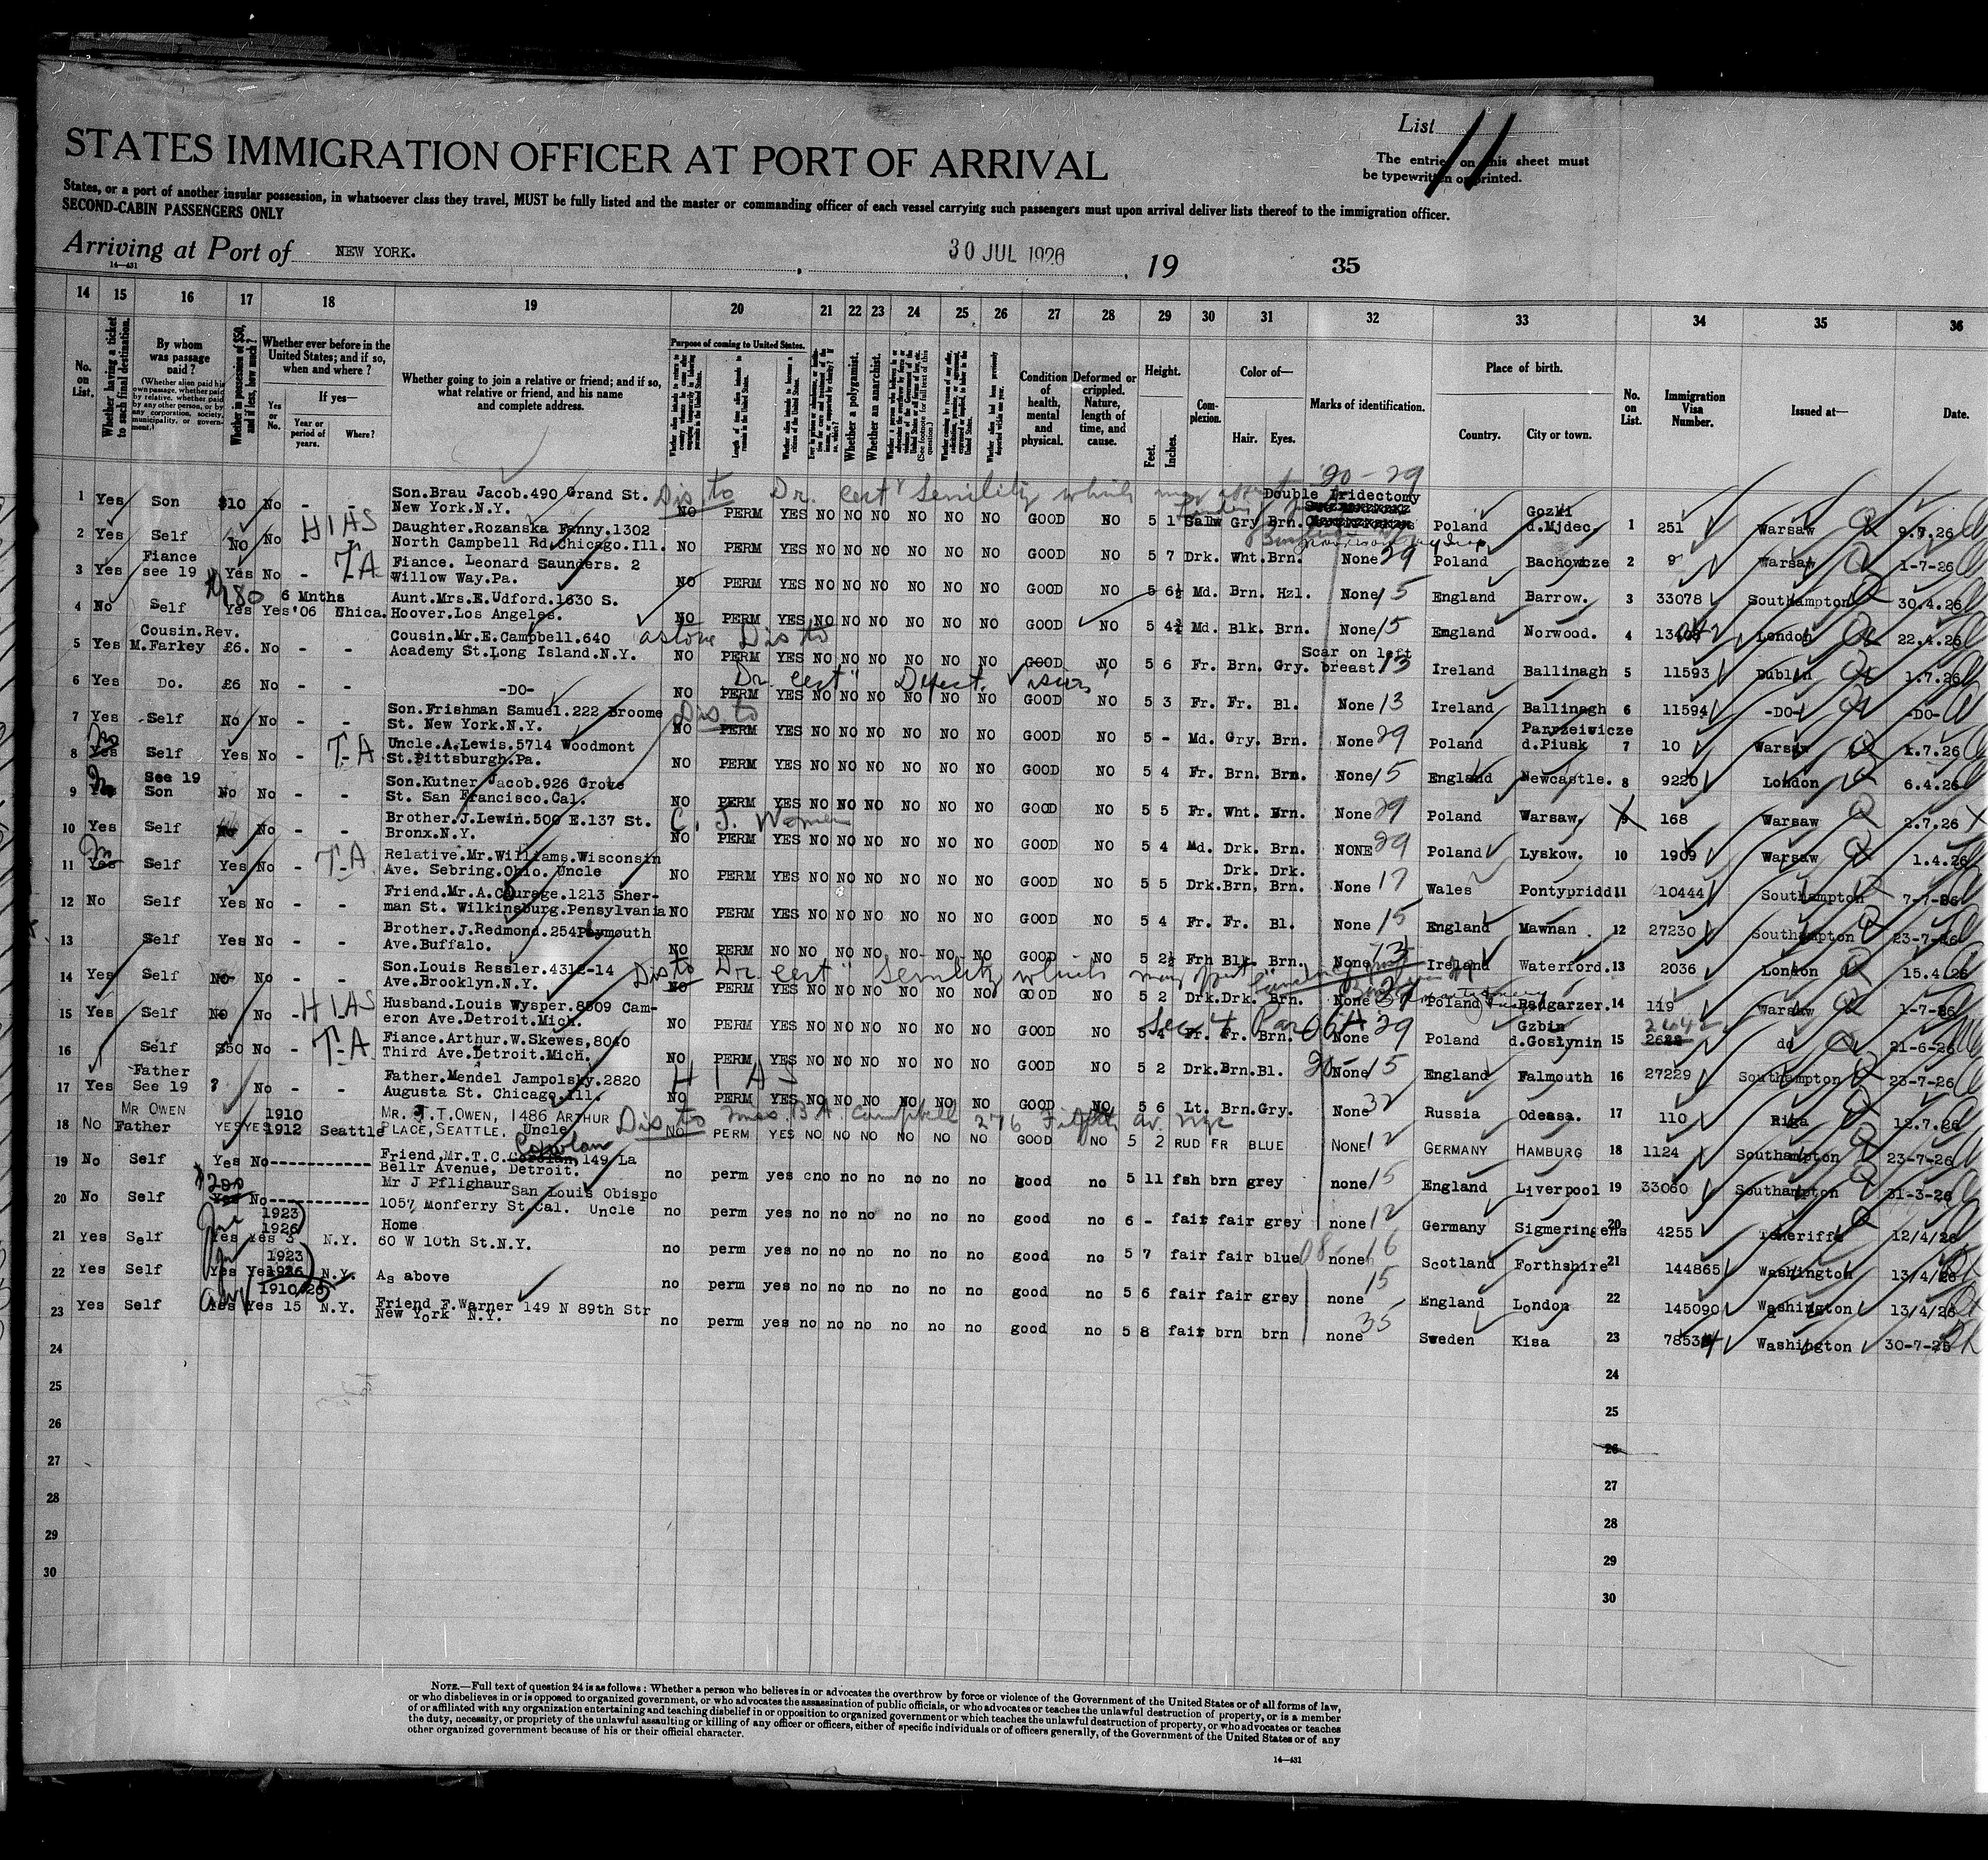 List 11
STATES IMMIGRATION OFFICER AT PORT OF ARRIVAL
The entries on this sheet must
be typewritten or printed.
States, or a port of another insular possession, in whatsoever class they travel, MUST be fully listed and the master or commanding officer of each vessel carrying such passengers must upon arrival deliver lists thereof to the immigration officer.
SECOND-CABIN PASSENGERS ONLY
Arriving at Port of NEW YORK. , 30 JUL 1926 , 19 35
14—431
14 15 16 17 18 19 20 21 22 23 24 25 26 27 28 29 30 31 32 33 34 35 36
No. on List.
Whether having a ticket to such final destination.
By whom was passage paid?
(Whether alien paid his own passage, whether paid by relative, whether paid by any other person, or by any corporation, society, municipality, or government.)
Whether in possession of $50, and if less, how much?
Whether ever before in the United States; and if so, when and where?
Yes or No.
If yes—
Year or period of years.
Where?
Whether going to join a relative or friend; and if so, what relative or friend, and his name and complete address.
Purpose of coming to United States.
Length of time alien intends to remain in the United States.
Whether alien intends to become a citizen of the United States.
Whether a polygamist.
Whether an anarchist.
Condition of health, mental and physical.
Deformed or crippled. Nature, length of time, and cause.
Height.
Feet. Inches.
Complexion.
Color of—
Hair. Eyes.
Marks of identification.
Place of birth.
Country. City or town.
No. on List.
Immigration Visa Number.
Issued at—
Date.
Dis to Dr. cert Senility which may affect 20-29
1 Yes Son $10 No - - Son.Brau Jacob.490 Grand St. New York.N.Y. NO PERM YES NO NO NO NO NO NO GOOD NO 5 1 Salw Gry Brn. Double Iridectomy Poland Gozki d.Mjdec. 1 251 Warsaw 9.7.26
2 Yes Self No No HIAS Daughter.Rozanska Fanny.1302 North Campbell Rd.Chicago.Ill. NO PERM YES NO NO NO NO NO NO GOOD NO 5 7 Drk. Wht. Brn. None 29 Poland Bachowicze 2 9 Warsaw 1-7-26
3 Yes Fiance see 19 Yes No - TA Fiance. Leonard Saunders. 2 Willow Way.Pa. NO PERM YES NO NO NO NO NO NO GOOD NO 5 6½ Md. Brn. Hzl. None 15 England Barrow. 3 33078 Southampton 30.4.26
4 No Self $180 Yes Yes 6 Mnths '06 Nhica. Aunt.Mrs.E.Udford.1630 S. Hoover.Los Angeles. NO PERM YES NO NO NO NO NO NO GOOD NO 5 4¾ Md. Blk. Brn. None 15 England Norwood. 4 London 22.4.26
5 Yes Cousin.Rev. M.Farkey £6. No - - Cousin.Mr.E.Campbell.640 Academy St.Long Island.N.Y. Dis to NO PERM YES NO NO NO NO NO NO GOOD NO 5 6 Fr. Brn. Gry. Scar on left breast 13 Ireland Ballinagh 5 11593 Dublin 1.7.26
6 Yes Do. £6 No - - -DO- Dr. cert Defect. vision NO PERM YES NO NO NO NO NO NO GOOD NO 5 3 Fr. Fr. Bl. None 13 Ireland Ballinagh 6 11594 -DO- -DO-
7 Yes Self No No - - Son.Frishman Samuel.222 Broome St. New York.N.Y. Dis to NO PERM YES NO NO NO NO NO NO GOOD NO 5 - Md. Gry. Brn. None 29 Poland Paryzeiwicze d.Piusk 7 10 Warsaw 1.7.26
8 Yes No Self Yes No - T-A Uncle.A.Lewis.5714 Woodmont St.Pittsburgh.Pa. NO PERM YES NO NO NO NO NO NO GOOD NO 5 4 Fr. Brn. Brn. None 15 England Newcastle. 8 9220 London 6.4.26
9 Yes See 19 Son No No - - Son.Kutner Jacob.926 Grove St. San Francisco.Cal. NO PERM YES NO NO NO NO NO NO GOOD NO 5 5 Fr. Wht. Brn. None 29 Poland Warsaw. 9 168 Warsaw 2.7.26
10 Yes Self No No - - Brother.J.Lewin.500 E.137 St. Bronx.N.Y. NO PERM YES NO NO NO NO NO NO GOOD NO 5 4 Md. Drk. Brn. NONE 29 Poland Lyskow. 10 1909 Warsaw 1.4.26
11 Yes Self Yes No - T-A Relative.Mr.Williams.Wisconsin Ave. Sebring.Ohio. Uncle NO PERM YES NO NO NO NO NO NO GOOD NO 5 5 Drk. Drk. Brn. Drk. Brn. None 17 Wales Pontypridd 11 10444 Southampton 7-7-26
12 No Self Yes No - - Friend.Mr.A.Courage.1213 Sherman St. Wilkinsburg.Pensylvania NO PERM YES NO NO NO NO NO NO GOOD NO 5 4 Fr. Fr. Bl. None 15 England Mawnan. 12 27230 Southampton 23-7-26
13 Self Yes No - - Brother.J.Redmond.254 Plymouth Ave.Buffalo. NO PERM NO NO NO NO NO NO NO GOOD NO 5 2½ Frh Blk. Brn. None 13 Ireland Waterford. 13 2036 London 15.4.26
14 Yes Self No No - - Son.Louis Ressler.4312-14 Ave.Brooklyn.N.Y. Dis to Dr. cert Senility which may affect NO PERM YES NO NO NO NO NO NO GOOD NO 5 2 Drk. Drk. Brn. None 29 Poland Radgarzer. 14 119 Warsaw 1-7-26
15 Yes Self No No - HIAS Husband.Louis Wysper.8509 Cameron Ave.Detroit.Mich. NO PERM YES NO NO NO NO NO NO GOOD NO 5 4 Fr. Fr. Brn. None 29 Poland Gzbin d.Gostynin 15 2642 do 21-6-26
16 Self $50 No - T-A Fiance.Arthur.W.Skewes,8040 Third Ave.Detroit.Mich. NO PERM YES NO NO NO NO NO NO GOOD NO 5 2 Drk. Brn. Bl. None 15 England Falmouth 16 27229 Southampton 23-7-26
17 Yes Father See 19 ? No - - Father.Mendel Jampolsky.2820 Augusta St. Chicago.Ill. HIAS NO PERM YES NO NO NO NO NO NO GOOD NO 5 6 Lt. Brn. Gry. None 32 Russia Odessa. 17 110 Riga 12.7.26
18 No Mr OWEN Father YES YES 1910 1912 Seattle MR. J.T.OWEN, 1486 ARTHUR PLACE,SEATTLE. Uncle Dis to Campbell 276 Fifth Av. nyc NO PERM YES NO NO NO NO NO NO GOOD NO 5 2 RUD FR BLUE NONE 12 GERMANY HAMBURG 18 1124 Southampton 23-7-26
19 No Self Yes No------------ Friend,Mr.T.C. 149 La Bellr Avenue, Detroit. no perm yes cno no no no no no good no 5 11 fsh brn grey none 15 England Liverpool 19 33060 Southampton 31-3-26
20 No Self $200 Yes No------------ Mr J Pflighaur San Louis Obispo 1057 Monferry St Cal. Uncle no perm yes no no no no no no good no 6 - fair fair grey none 12 Germany Sigmeringens 20 4255 Teneriffe 12/4/26
21 Yes Self Yes Yes 1923 1926 3 N.Y. Home 60 W 10th St.N.Y. no perm yes no no no no no no good no 5 7 fair fair blue none 16 Scotland Forthshire 21 144865 Washington 13/4/26
22 Yes Self Yes Yes 1923 1926 N.Y. As above no perm yes no no no no no no good no 5 6 fair fair grey none 15 England London 22 145090 Washington 13/4/26
23 Yes Self Yes Yes 1910/25 15 N.Y. Friend F.Warner 149 N 89th Str New York N.Y. no perm yes no no no no no no good no 5 8 fair brn brn none 35 Sweden Kisa 23 78534 Washington 30-7-25
24 24
25 25
26 26
27 27
28 28
29 29
30 30
NOTE.—Full text of question 24 is as follows: Whether a person who believes in or advocates the overthrow by force or violence of the Government of the United States or of all forms of law,
or who disbelieves in or is opposed to organized government, or who advocates the assassination of public officials, or who advocates or teaches the unlawful destruction of property, or is a member
of or affiliated with any organization entertaining and teaching disbelief in or opposition to organized government or which teaches the unlawful destruction of property, or who advocates or teaches
the duty, necessity, or propriety of the unlawful assaulting or killing of any officer or officers, either of specific individuals or of officers generally, of the Government of the United States or of any
other organized government because of his or their official character.
14—431